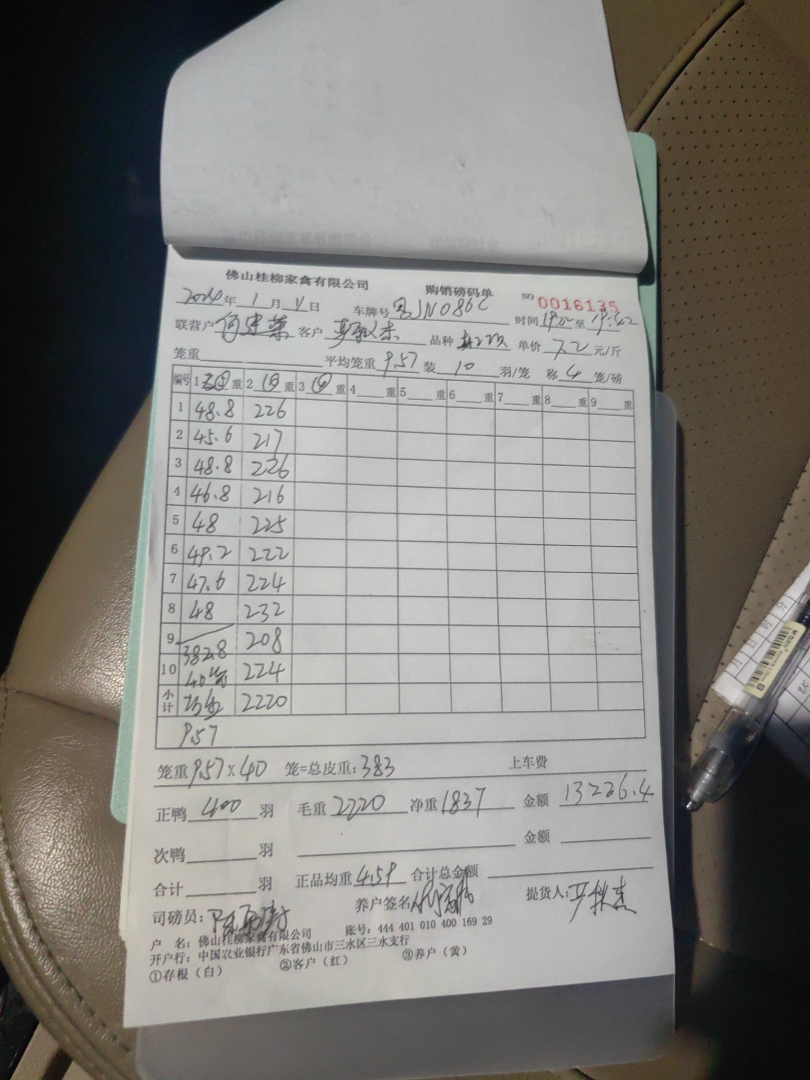 佛山桂柳家禽有限公司 购销磅码单 NO 0016135
2024年 1月 4日 车牌号 JN086C 时间 至
联营户 客户 品种 单价 7.2 元/斤
笼重 平均笼重 9.57 装 10 羽/笼 称 4 笼/磅
编号 1 重 2 重 3 重 4 重 5 重 6 重 7 重 8 重 9 重
1 48.8 226
2 45.6 217
3 48.8 226
4 46.8 216
5 48 225
6 49.2 222
7 47.6 224
8 48 232
9 382.8 208
10 40 224
小计 2220
9.57
笼重 9.57×40 笼=总皮重: 383 上车费
正鸭 400 羽 毛重 2220 净重 1837 金额 13226.4
次鸭 羽 金额
合计 羽 正品均重 4.59 合计总金额
司磅员: 养户签名 提货人:
户 名: 佛山桂柳家禽有限公司 账号: 444 401 010 400 169 29
开户行: 中国农业银行广东省佛山市三水区三水支行
①存根(白) ②客户(红) ③养户(黄)